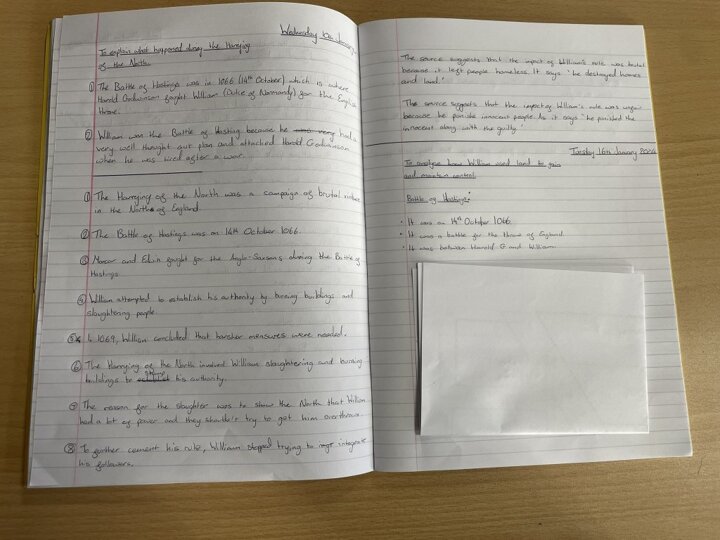 Wednesday 10th January
To explain what happened during the Harrying
of the North.
① The Battle of Hastings was in 1066 (14th October) which is where
Harold Godwinson fought William (Duke of Normandy) for the English
throne.
② William won the Battle of Hasting because he had a
very well thought out plan and attacked Harold Godwinson
when he was tired after a war.
① The Harrying of the North was a campaign of brutal violence
in the North of England.
② The Battle of Hastings was on 14th October 1066.
③ Morcar and Edwin fought for the Anglo-Saxons during the Battle of
Hastings
④ William attempted to establish his authority by burning buildings and
slaughtering people
⑤ In 1069, William concluded that harsher measures were needed.
⑥ The Harrying of the North involved William slaughtering and burning
buildings to his authority.
⑦ The reason for the slaughter was to show the North that William
had a lot of power and they shouldn't try to get him overthrown.
⑧ To further cement his rule, William stopped trying to integrate
his followers.
The source suggests that the impact of William's rule was brutal
because it left people homeless. It says 'he destroyed homes
and land.'
The source suggests that the impact of William's rule was unfair
because he punish innocent people. As it says 'he punished the
innocent along with the guilty.'
Tuesday 16th January 2024
To analyse how William used land to gain
and maintain control.
Battle of Hastings:
• It was on 14th October 1066.
• It was a battle for the throne of England.
• It was between Harold G and William.